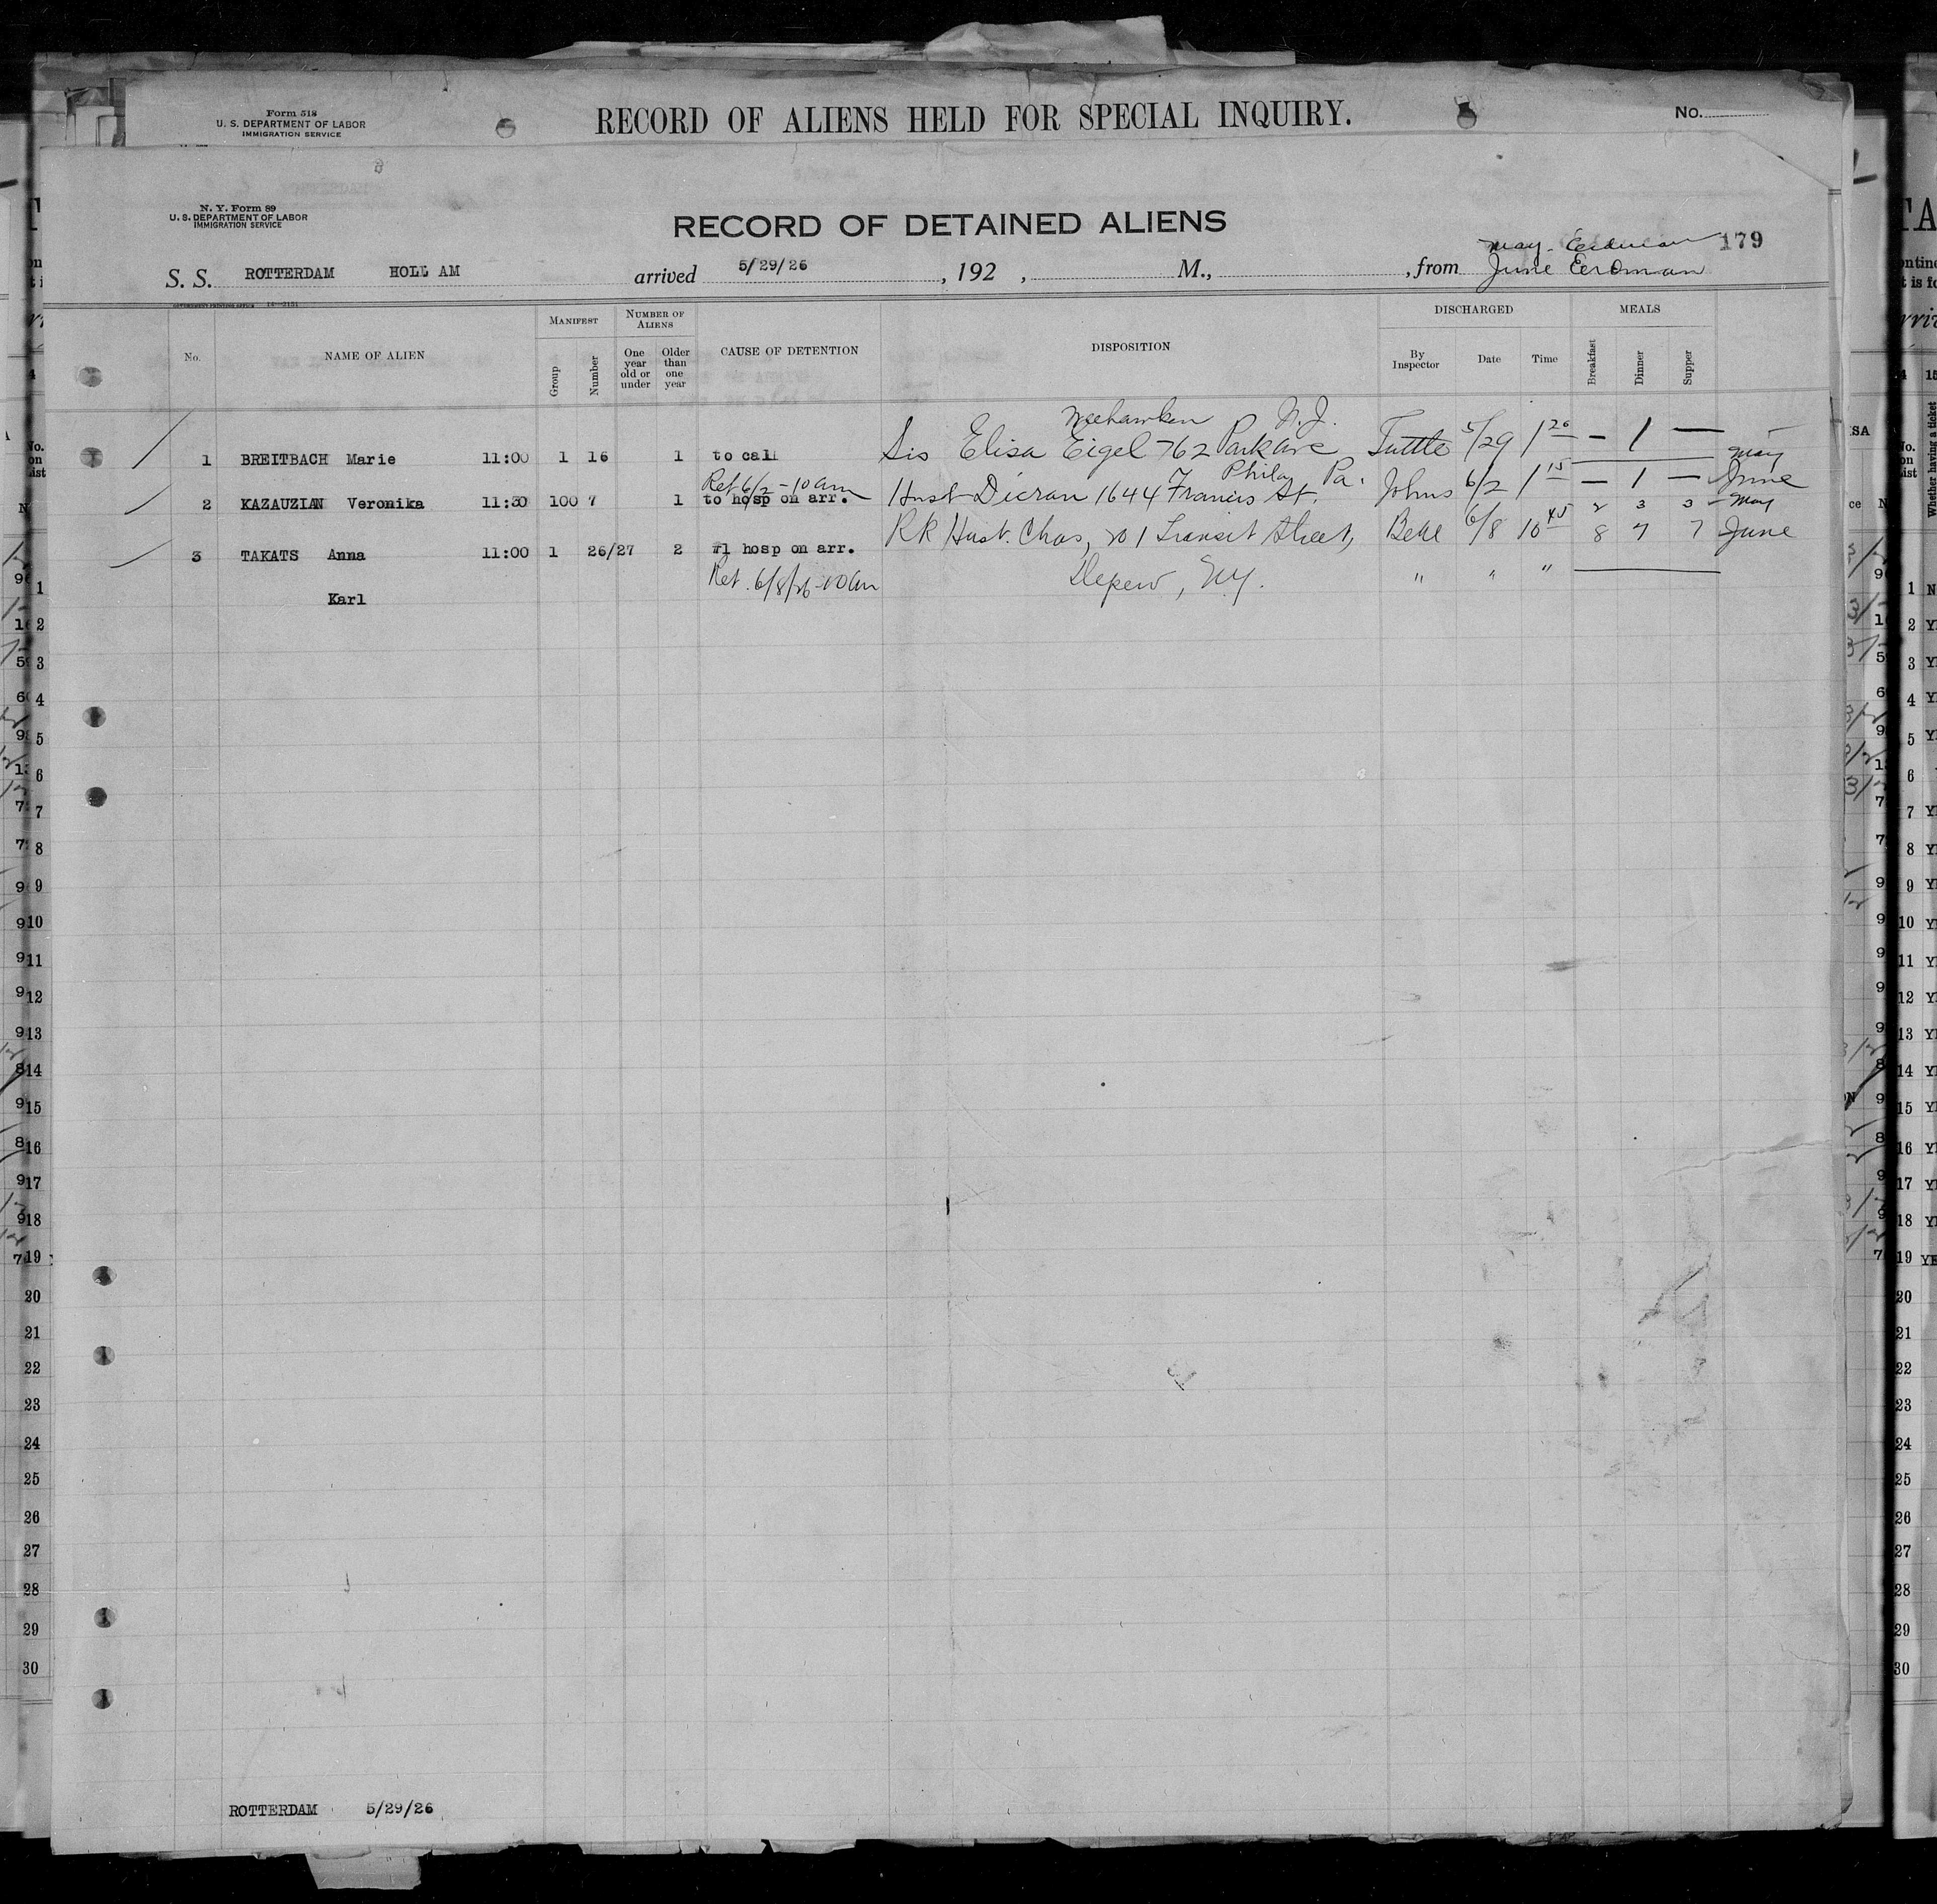 Form 518
U. S. DEPARTMENT OF LABOR
IMMIGRATION SERVICE
RECORD OF ALIENS HELD FOR SPECIAL INQUIRY.
No.
N. Y. Form 89
U. S. DEPARTMENT OF LABOR
IMMIGRATION SERVICE
RECORD OF DETAINED ALIENS
179
May - Eerdman
S. S. ROTTERDAM HOLL AM arrived 5/29/26, 192 , M., , from June Eerdman
GOVERNMENT PRINTING OFFICE
No.
NAME OF ALIEN
MANIFEST
Group
Number
NUMBER OF ALIENS
One year old or under
Older than one year
CAUSE OF DETENTION
DISPOSITION
DISCHARGED
By Inspector
Date
Time
MEALS
Breakfast
Dinner
Supper
Weehawken N.J.
1 BREITBACH Marie 11:00 1 16 1 to call Sis Elisa Eigel 762 Park Ave Tuttle 5/29 1 20 — 1 — —
Ret 6/2 - 10 am Phila Pa. May
2 KAZAUZIAN Veronika 11:30 100 7 1 to hosp on arr. Husb Dicran 1644 Francis St. Johns 6/2 1 15 — 1 — June
2 3 3 - May
3 TAKATS Anna 11:00 1 26/27 2 #1 hosp on arr. RR Husb. Chas, 201 Transit Street, 6/8 10 45 8 7 7 June
Ret. 6/8/26 - 10 am Depew, N.Y. " " "
Karl
1
2
3
4
5
6
7
8
9
10
11
12
13
14
15
16
17
18
19
20
21
22
23
24
25
26
27
28
29
30
ROTTERDAM 5/29/26